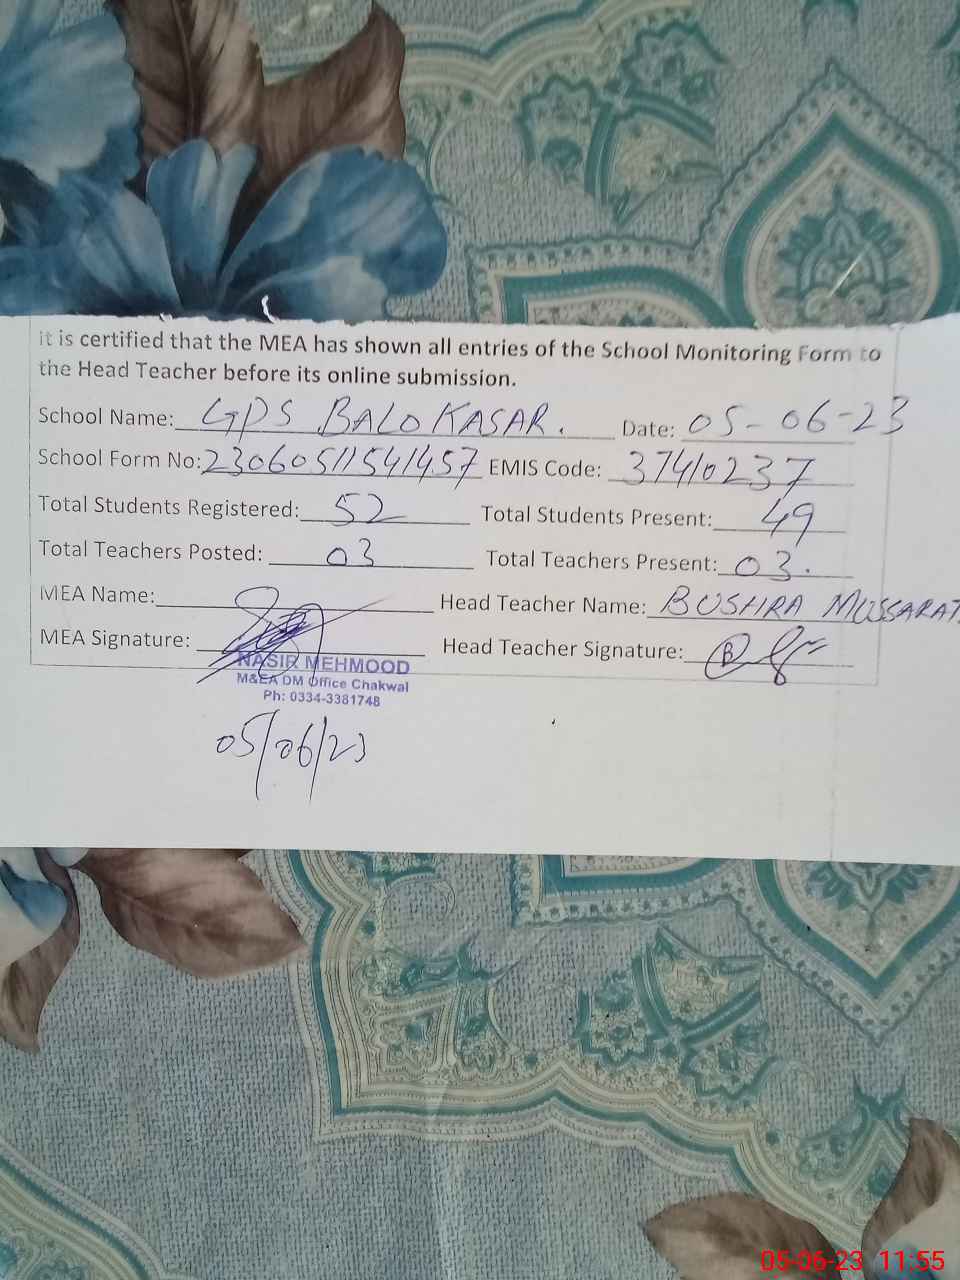 it is certified that the MEA has shown all entries of the School Monitoring Form to
the Head Teacher before its online submission.
School Name: GPS BALOKASAR. Date: 05-06-23
School Form No: 23060511541457 EMIS Code: 37410237
Total Students Registered: 52 Total Students Present: 49
Total Teachers Posted: 03 Total Teachers Present: 03.
MEA Name: Head Teacher Name: BUSHRA MUSSARAT
MEA Signature: Head Teacher Signature:
NASIR MEHMOOD
M&EA DM Office Chakwal
Ph: 0334-3381748
05/06/23
05-06-23 11:55